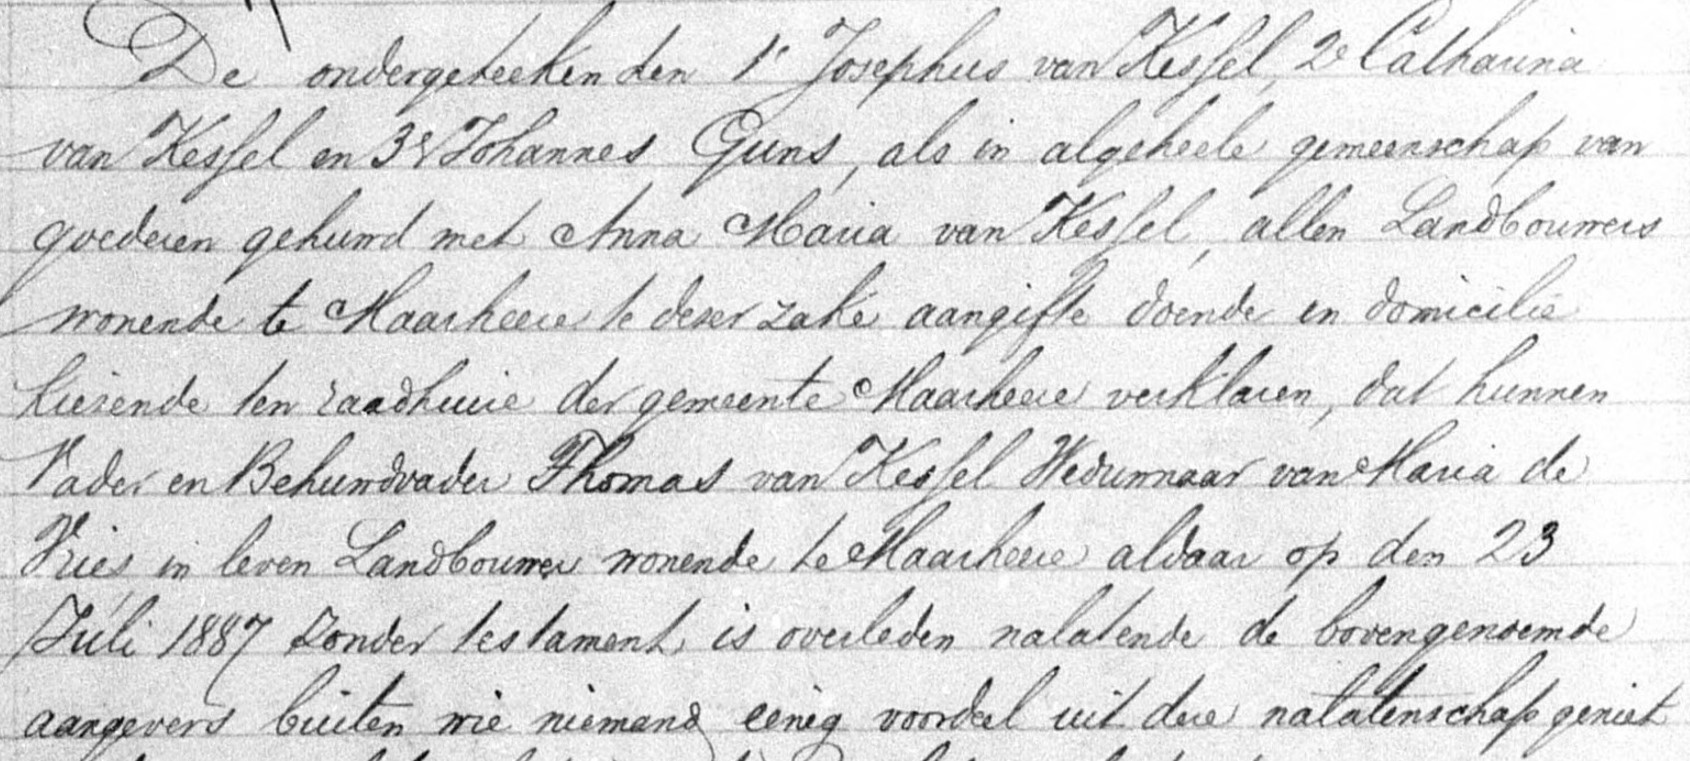 De ondergeteekenden 1e Josephus van Kessel, 2e Catharina
van Kessel en 3e Johannes Guns, als in algeheele gemeenschap van
goederen gehuwd met Anna Maria van Kessel, allen Landbouwers
wonende te Maarheeze te dezer zake aangifte doende en domicilie
kiezende ten raadhuize der gemeente Maarheeze verklaren, dat hunnen
Vader en Behuwdvader Thomas van Kessel Weduwnaar van Maria de
Vries, in leven Landbouwer wonende te Maarheeze aldaar op den 23
Juli 1887 zonder testament, is overleden nalatende de bovengenoemde
aangevers buiten wie niemand eenig voordeel uit deze nalatenschap geniet